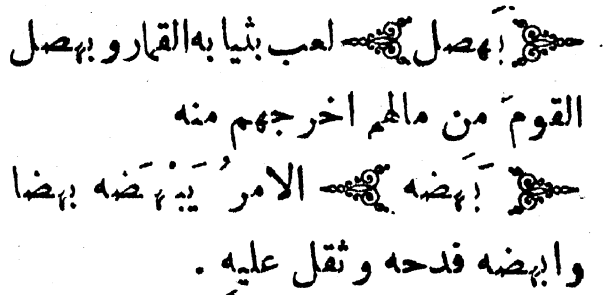 ﴿ بَهصل ﴾ لعب بثيابه القمار و بهصل
القومَ من مالهم اخرجهم منه
﴿ بَهَضه ﴾ الامرُ يَبْهَضه بهضا
وابهضه فدحه وثقل عليه .